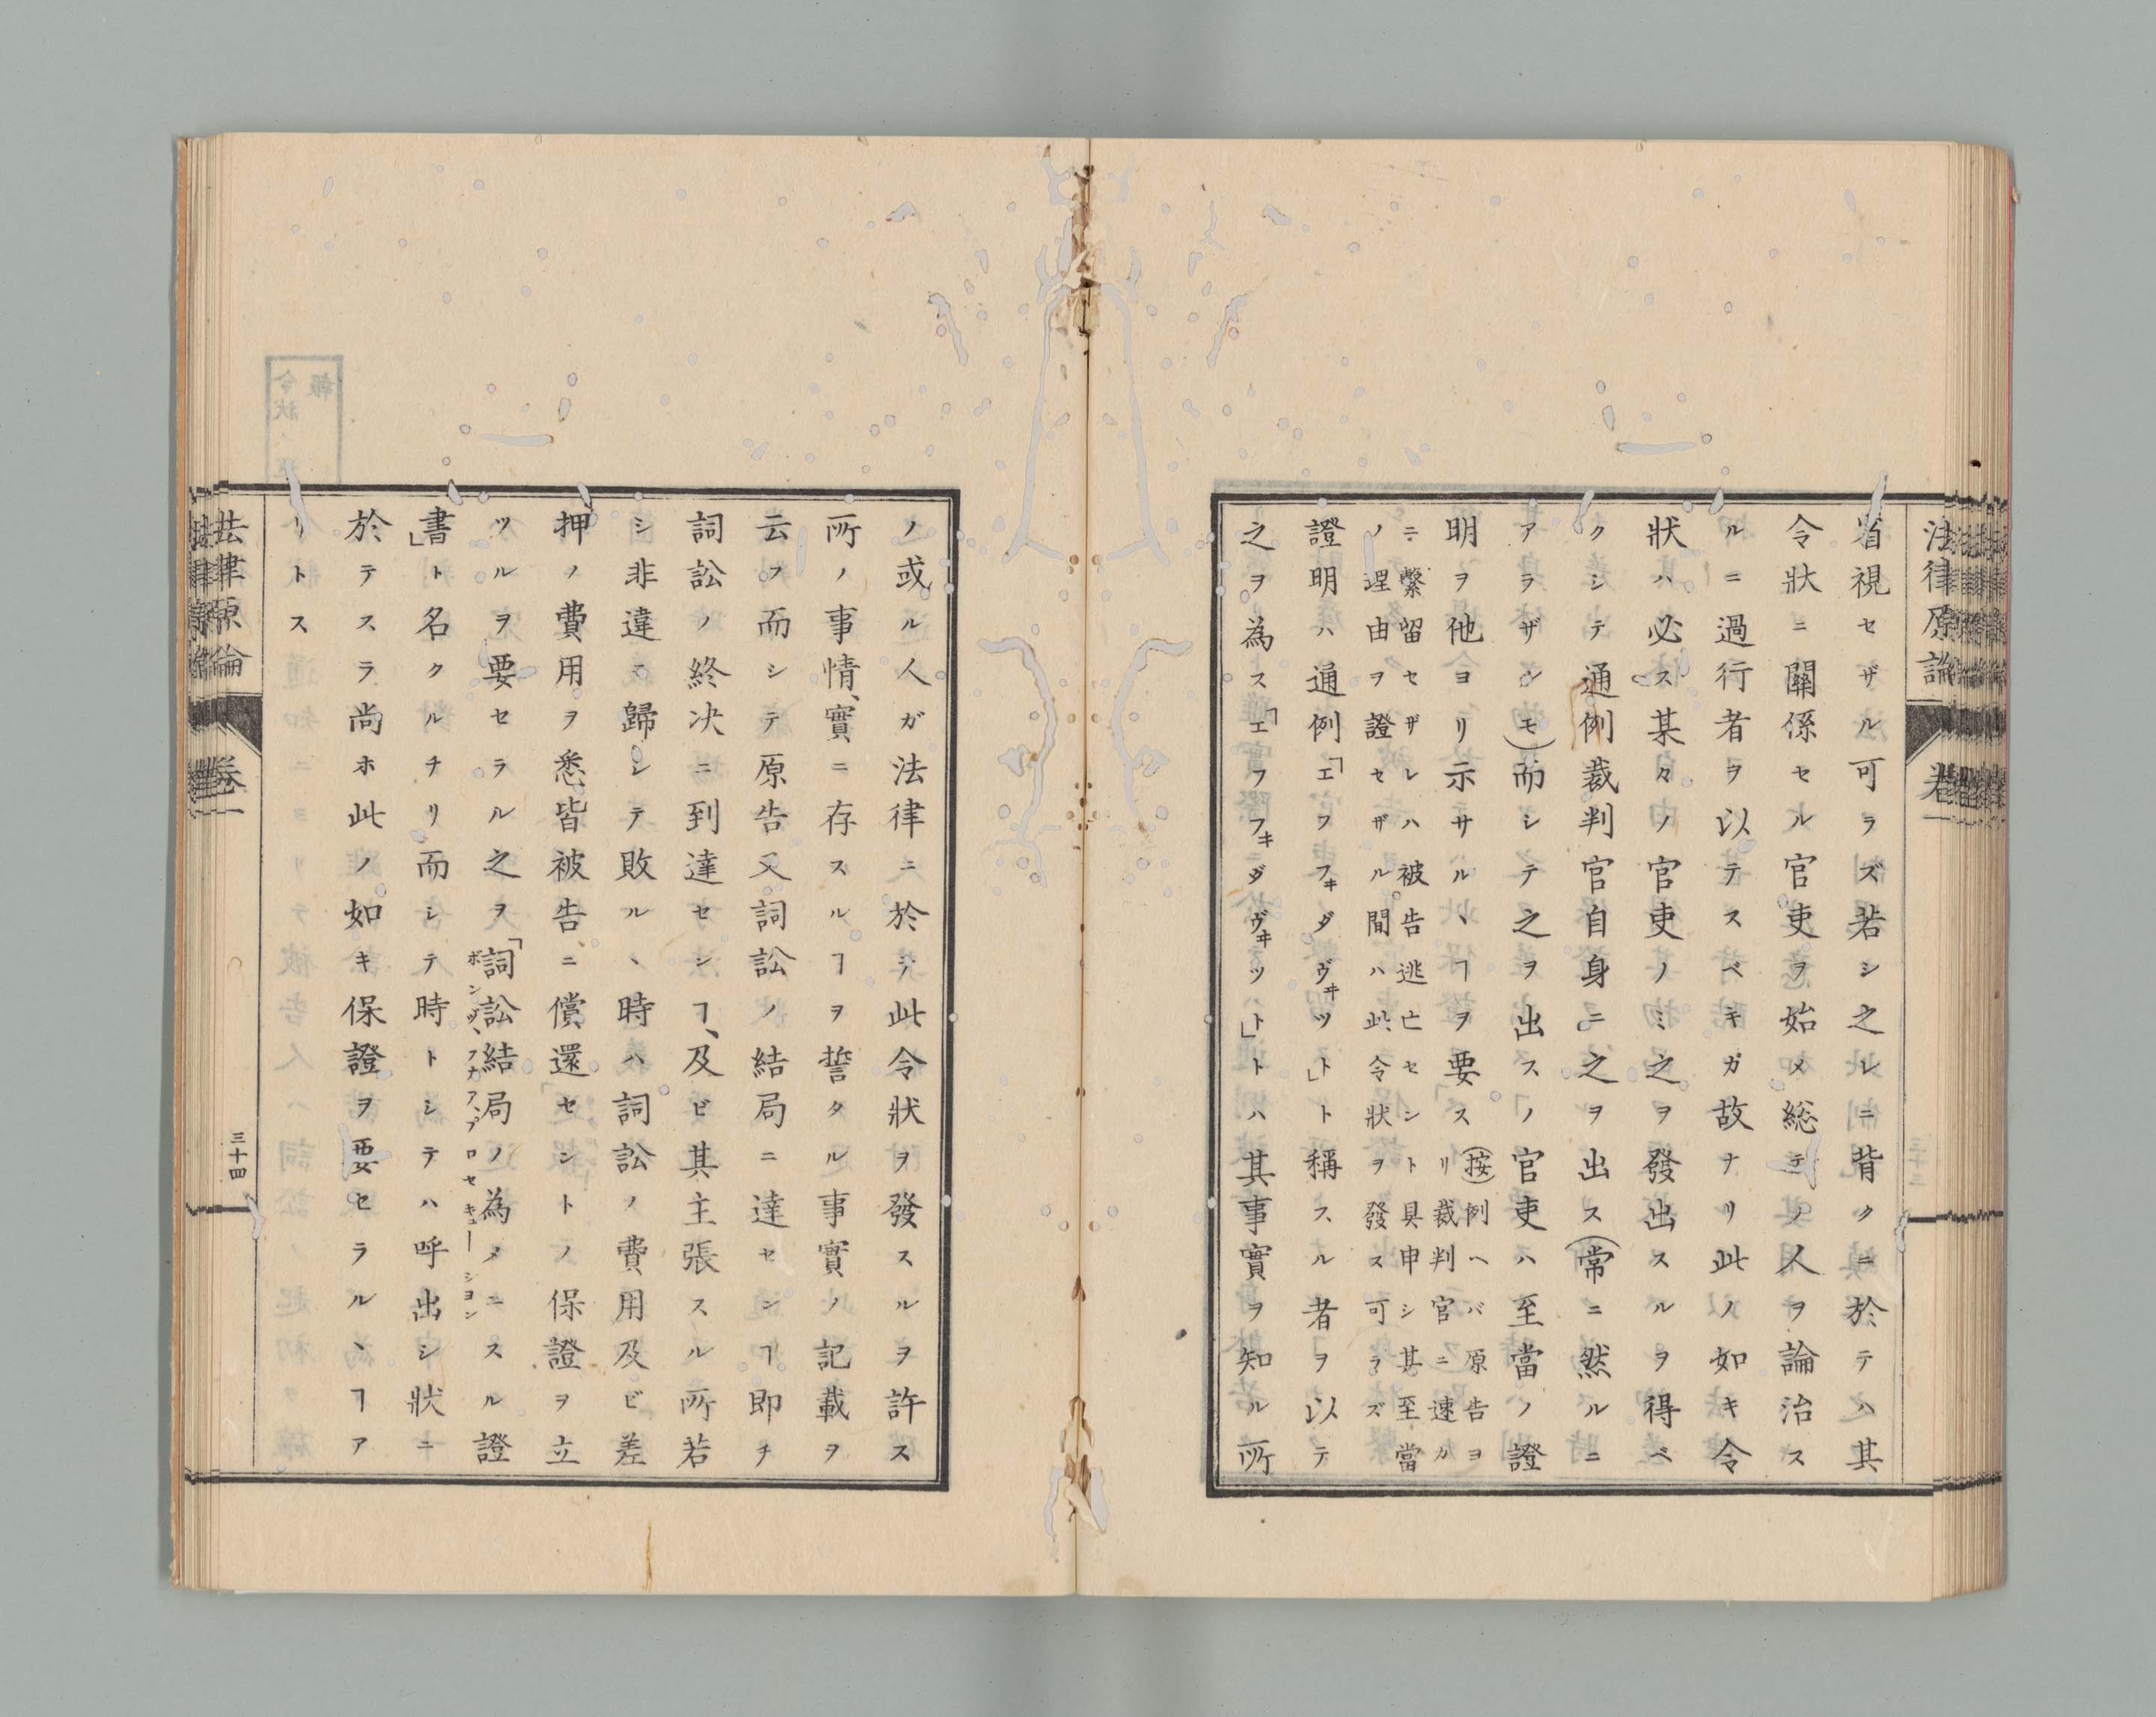 法律原論 卷二
省視セザル可ラズ若シ之レニ背クニ於テハ其
令狀ニ關係セル官吏ヲ始メ総テノ人ヲ論治ス
ルニ過行者ヲ以テスベキガ故ナリ此ノ如キ令
狀ハ必ス某々ノ官吏ノミ之ヲ發出スルヲ得ベ
クシテ通例裁判官自身ニ之ヲ出ス(常ニ然ルニ
アヲザンモ)而シテ之ヲ出スノ官吏ハ至當ノ證
明ヲ他ヨリ示サルヽヿヲ要ス(按)例ヘバ原告ヨ
リ裁判官ニ速カ
ニ繫留セザレハ被告逃亡セント具申シ其至當
ノ理由ヲ證セザル間ハ此令狀ヲ發ス可ラズ
證明ハ通例「エフフヰダヴヰツト」ト稱スル者ヲ以テ
之ヲ為ス「エフフヰダヴヰツト」トハ其事實ヲ知ル所
ノ或ル人ガ法律ニ於テ此令狀ヲ發スルヲ許ス
所ノ事情、實ニ存スルヿヲ誓タル事實ノ記載ヲ
云フ而シテ原告又詞訟ノ結局ニ達センヿ即チ
詞訟ノ終决ニ到達センヿ、及ビ其主張スル所若
シ非違ニ歸シテ敗ルヽ時ハ詞訟ノ費用及ビ差
押ノ費用ヲ悉皆被告ニ償還センㇳノ保證ヲ立
ツルヲ要セラル之ヲ「詞訟結局ノ為メニスル證
ボンヅ、フナア、プロセキューション
書」ト名クルナリ而シテ時トシテハ呼出シ狀ニ
於テスラ尚ホ此ノ如キ保證ヲ要セラルヽヿア
リトス
法律原論 卷二 三十四